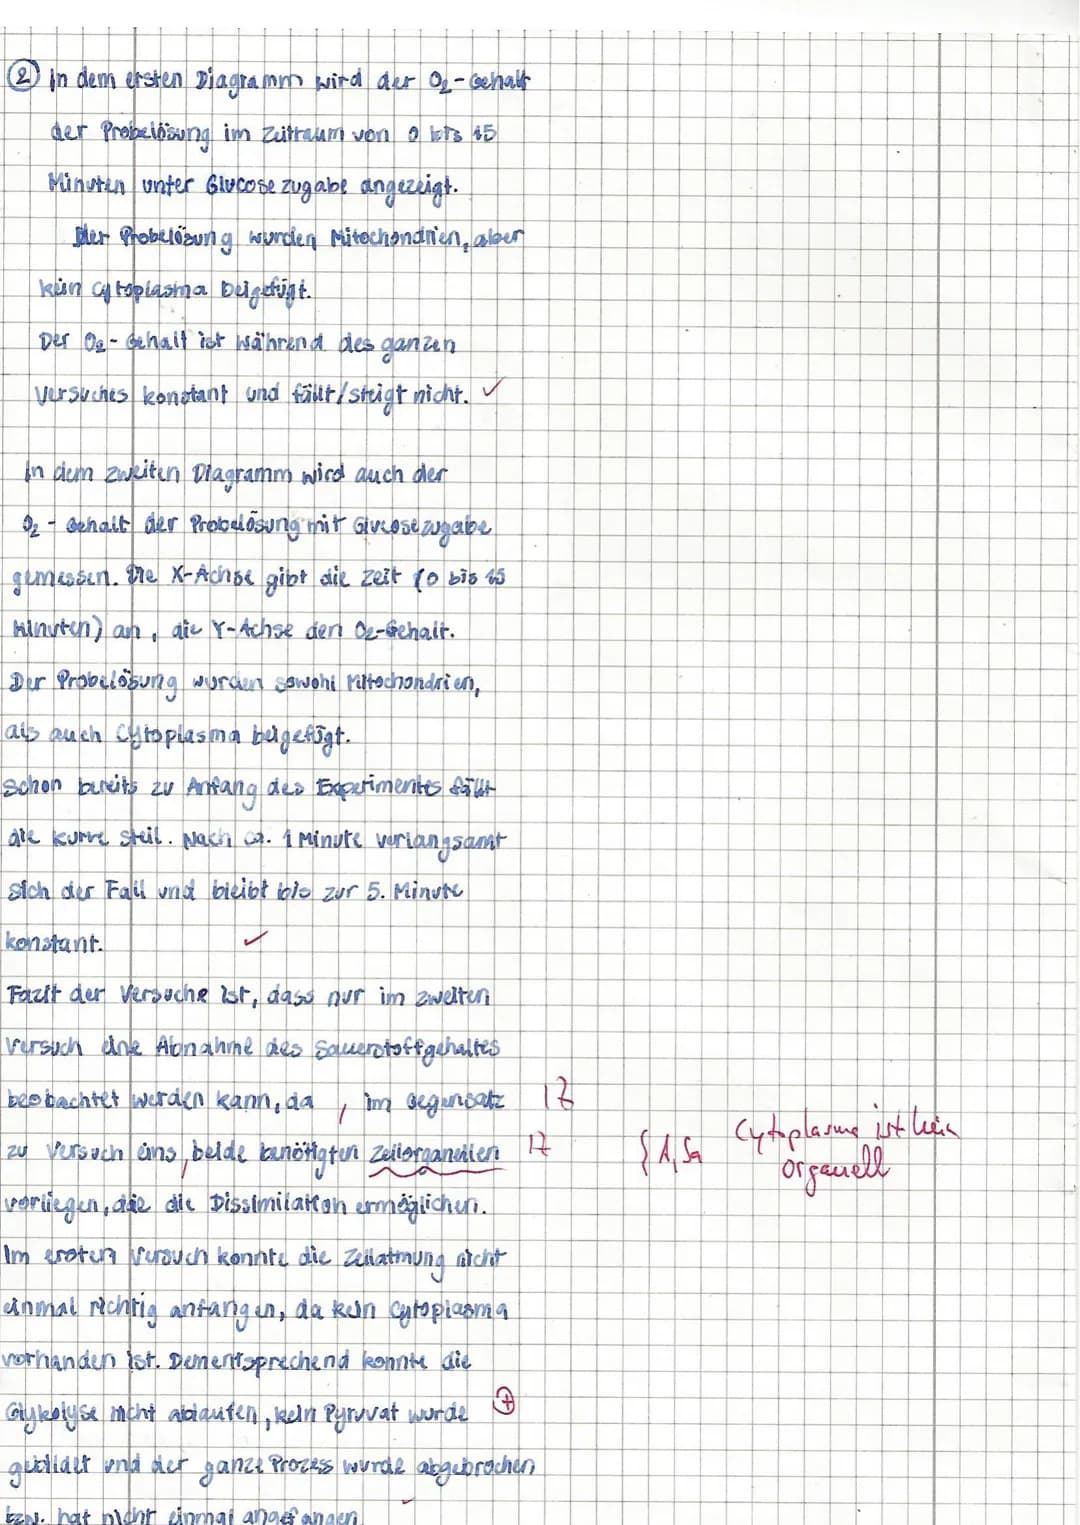 ② In dem ersten Diagramm wird der O₂-Gehalt
der Probelösung im Zeitraum von 0 bis 15
Minuten unter Glucosezugabe angezeigt.
Der Probelösung wurden Mitochondrien, aber
kein Cytoplasma beigefügt.
Der O₂-Gehalt ist während des ganzen
Versuches konstant und fällt/steigt nicht. ✓
In dem zweiten Diagramm wird auch der
O₂-Gehalt der Probelösung mit Glucosezugabe
gemessen. Die X-Achse gibt die Zeit (0 bis 15
Minuten) an, die Y-Achse den O₂-Gehalt.
Der Probelösung wurden sowohl Mitochondrien,
als auch Cytoplasma beigefügt.
Schon bereits zu Anfang des Experimentes fällt
die Kurve steil. Nach ca. 1 Minute verlangsamt
sich der Fall und bleibt bis zur 5. Minute
konstant. ✓
Fazit der Versuche ist, dass nur im zweiten
Versuch eine Abnahme des Sauerstoffgehaltes
beobachtet werden kann, da, im Gegensatz 1Z
zu Versuch eins, beide benötigten Zellorganellen 1Z { A, Sa Cytoplasma ist kein
Organell
vorliegen, die die Dissimilation ermöglichen.
Im ersten Versuch konnte die Zellatmung nicht
einmal richtig anfangen, da kein Cytoplasma
vorhanden ist. Dementsprechend konnte die
Glykolyse nicht ablaufen, kein Pyruvat wurde ⊕
gebildet und der ganze Prozess wurde abgebrochen
bzw. hat nicht einmal angefangen.